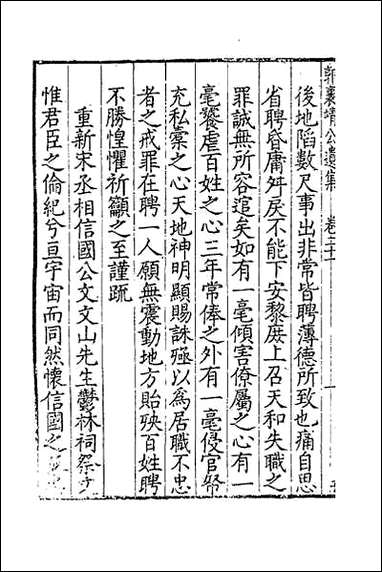 郭襄靖公遺集　卷三十
後地陷數尺事出非常皆聘薄德所致也痛自思
省聘昏庸舛戾不能下安黎庶上召天和失職之
罪誠無所容逭矣如有一毫傾害僚屬之心有一
毫饕虐百姓之心三年常俸之外有一毫侵官幣
充私槖之心天地神明顯賜誅殛以為居職不忠
者之戒罪在聘一人願無震動地方貽殃百姓聘
不勝惶懼祈籲之至謹䟽
重新宋丞相信國公文文山先生鬱林祠祭文
惟君臣之倫紀兮亘宇宙而同然懷信國之